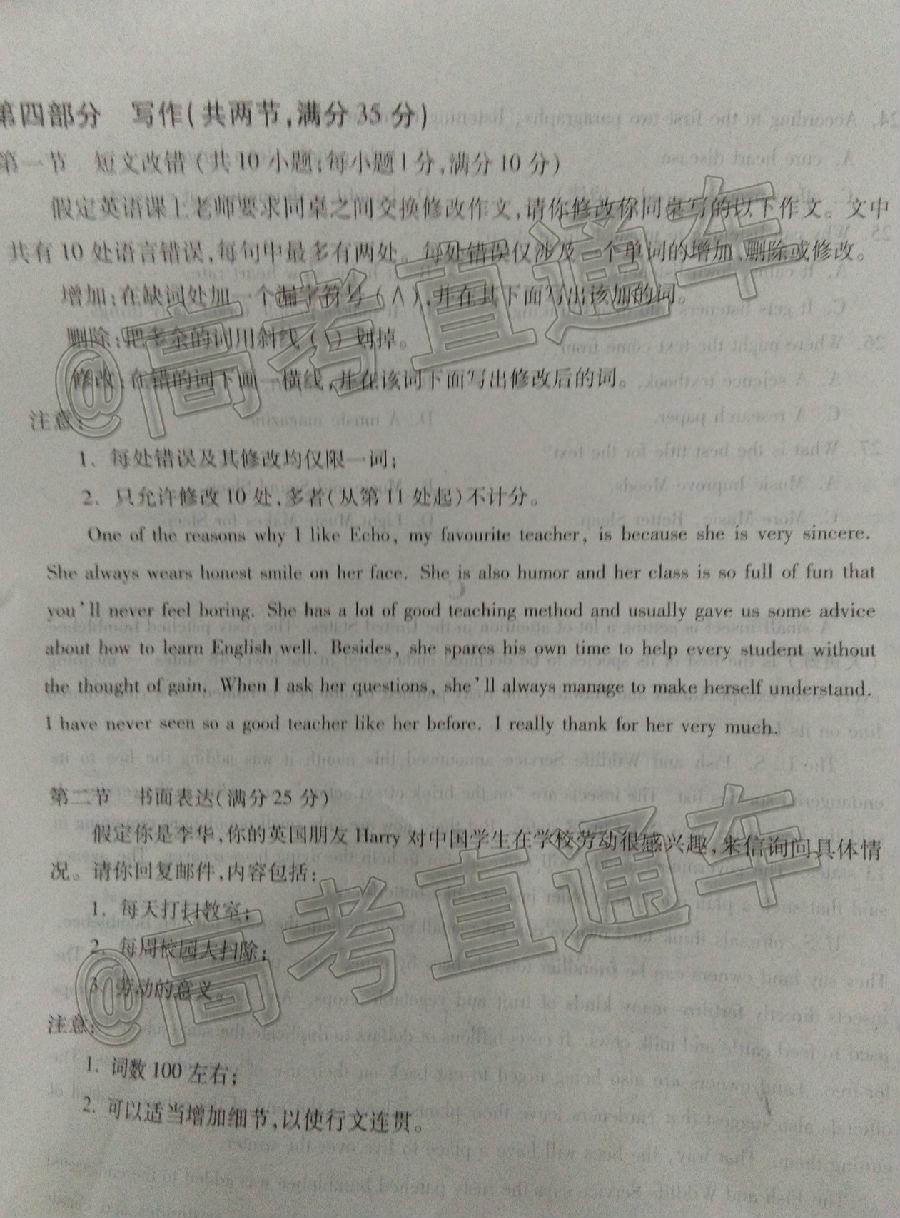 第四部分 写作(共两节,满分35分)
第一节 短文改错(共10小题;每小题1分,满分10分)
假定英语课上老师要求同桌之间交换修改作文,请你修改你同桌写的以下作文。文中
共有10处语言错误,每句中最多有两处。每处错误仅涉及一个单词的增加、删除或修改。
增加:在缺词处加一个漏字符号(∧),并在其下面写出该加的词。
删除:把多余的词用斜线(\)划掉。
修改:在错的词下画一横线,并在该词下面写出修改后的词。
注意:
1. 每处错误及其修改均仅限一词;
2. 只允许修改10处,多者(从第11处起)不计分。
One of the reasons why I like Echo, my favourite teacher, is because she is very sincere.
She always wears honest smile on her face. She is also humor and her class is so full of fun that
you'll never feel boring. She has a lot of good teaching method and usually gave us some advice
about how to learn English well. Besides, she spares his own time to help every student without
the thought of gain. When I ask her questions, she'll always manage to make herself understand.
I have never seen so a good teacher like her before. I really thank for her very much.
第二节 书面表达(满分25分)
假定你是李华,你的英国朋友Harry对中国学生在学校劳动很感兴趣,来信询问具体情
况。请你回复邮件,内容包括:
1. 每天打扫教室;
2. 每周校园大扫除;
3. 劳动的意义。
注意:
1. 词数100左右;
2. 可以适当增加细节,以使行文连贯。
@高考直通车
@高考直通车